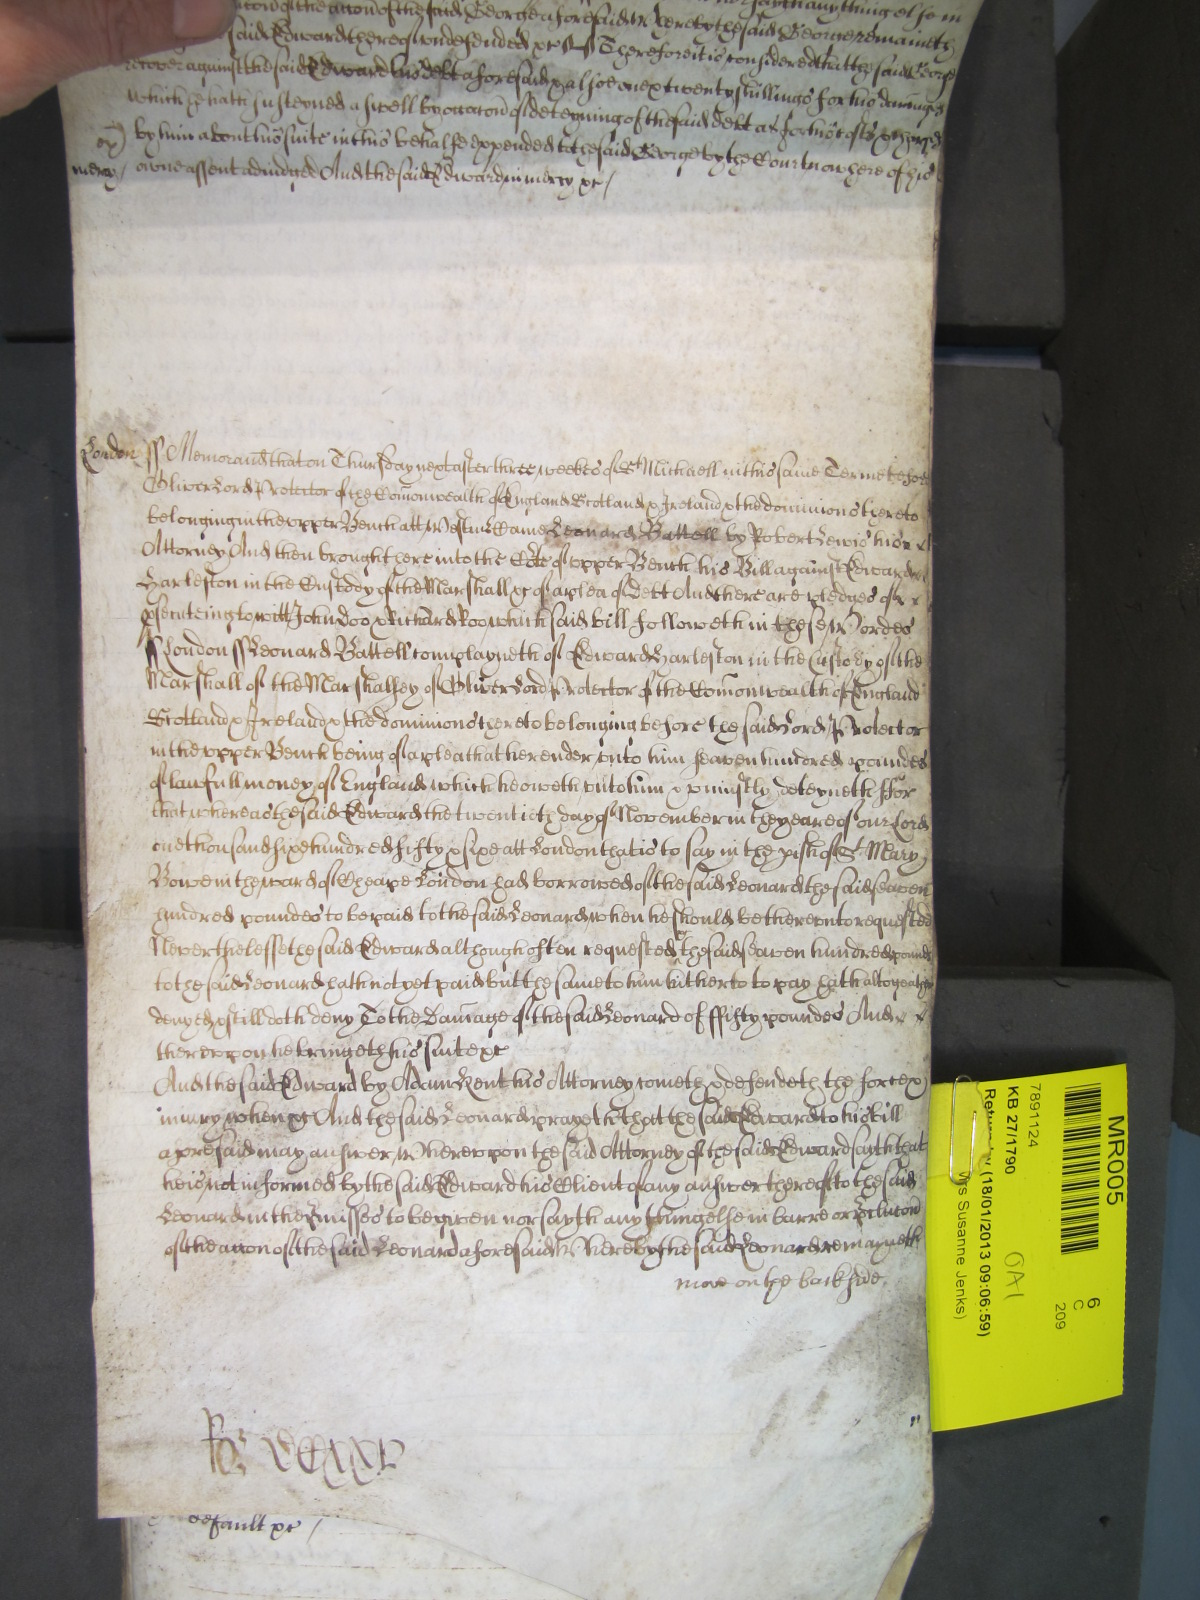 accon of the said George aforesaid Whereby the said George remaineth
said Edward thereof undefended &c Therefore it is considered that the said George
recover against the said Edward his debt aforesaid & alsoe twenty shillings for his damages
which he hath susteyned aswell by occacon of deteyning of the said debt as for his costs & charges
by him about his suite in this behalfe expended to the said George by the Court now here of his
mercy/ owne assent adiudged And the said Edward in mercy &c/
London ss Memorand that on Thursday next after three weekes of St Michaell in this same Terme before
Oliver Lord Protector of the Comonwealth of England Scotland & Ireland & the dominions thereto
belonging in the upper Bench att Westm Came Leonard Battell by Robert Lewis his
Attorney And then brought here into the Cort of upper Bench his Bill against Edward
Harleston in the Custody of the Marshall &c of a plea of Debt And there are pledges of
psecuteing to witt John Doo & Richard Roo which said bill followeth in these Wordes
ss London ss Leonard Battell complayneth of Edward Harleston in the Custody of the
Marshall of the Marshalsey of Oliver Lord Protector of the Comonwealth of England
Scotland & Ireland & the dominions thereto belonging before the said Lord Protector
in the upper Bench being of a plea that he render unto him seaven hundred poundes
of lawfull money of England which he oweth unto him & uniustly deteyneth ffor
that whereas the said Edward the twentieth day of November in the yeare of our Lord
one thousand sixe hundred fifty & sixe att London that is to say in the pish of St Mary
Bowe in the ward of Cheape London had borrowed of the said Leonard the said seaven
hundred poundes to be paid to the said Leonard when he should be thereunto requested
Neverthelesse the said Edward although often requested the said seaven hundred pounds
to the said Leonard hath not yet paid but the same to him hitherto to pay hath altogeather
denyed & still doth deny To the Damage of the said Leonard of ffifty poundes And
thereupon he bringeth his suite &c
And the said Edward by Adam Kent his Attorney cometh & defendeth the force &
iniury when &c And the said Leonard prayeth that the said Edward to his bill
aforesaid may answer Whereupon the said Attorney of the said Edward sayth that
he is not informed by the said Edward his Client of any answer thereof to the said
Leonard in the pmisses to be given nor sayth any thing else in barre or pclucon
of the accon of the said Leonard aforesaid Whereby the said Leonard remayneth
more on the back side.
default &c /
MR005
7891124
KB 27/1790
6
C
209
(18/01/2013 09:06:59)
OA1
Mrs Susanne Jenks)